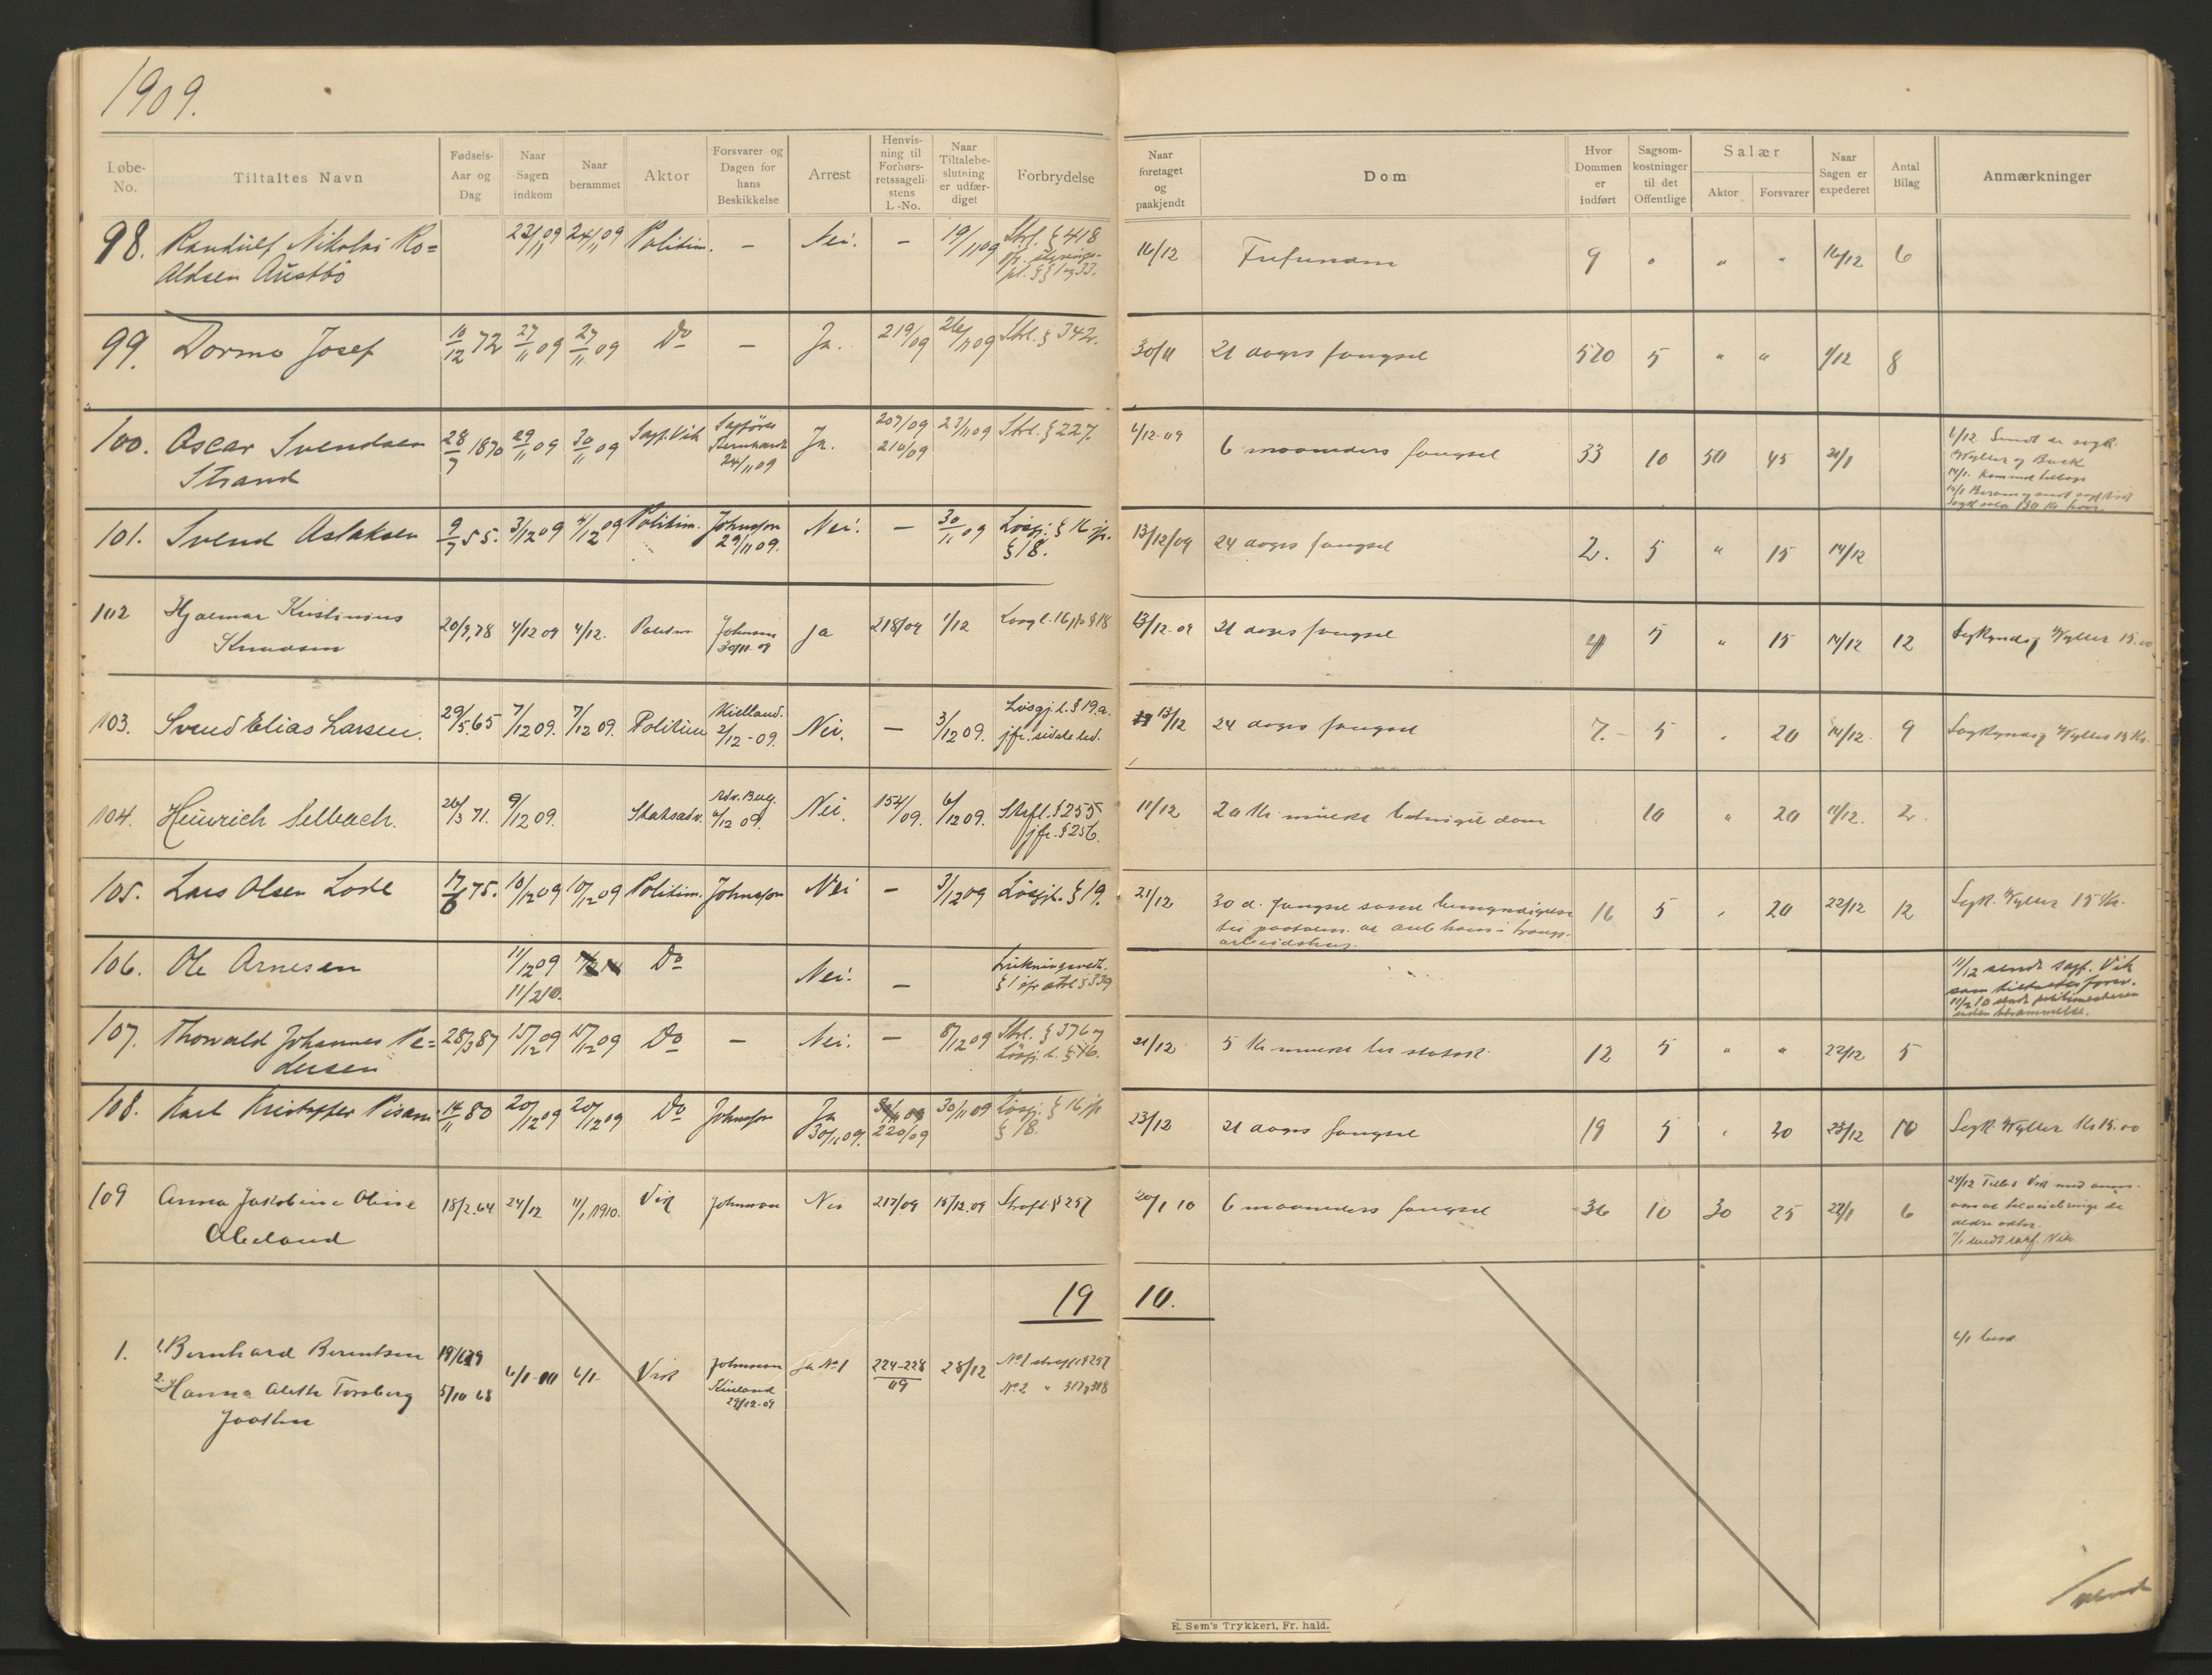 1909.
Løbe-No.
Tiltaltes Navn
Fødsels-Aar og Dag
Naar Sagen indkom
Naar berammet
Aktor
Forsvarer og Dagen for hans Beskikkelse
Arrest
Henvis-ning til Forhørs-retssageli-stens L.-No.
Naar Tiltalebe-slutning er udfær-diget
Forbrydelse
Naar foretaget og paakjendt
Dom
Hvor Dommen er indført
Sagsom-kostninger til det Offentlige
Salær
Aktor
Forsvarer
Naar Sagen er expederet
Antal Bilag
Anmærkninger
98. Randulf Nikolai Ro= 23/11 09 24/11 09 Politim. — Nei. — 19/11 09 Strl. § 418 16/12 Frifunden 9 " " " 16/12 6
aldsen Austbö
99. Dormo Josef 10/12 72 27/11 09 27/11 09 Do — Ja. 219/09 26/11 09 Strl. § 342. 30/11 21 dages fængsel 570 5 " " 1/12 8
100. Oscar Svendsen 28/7 1870 29/11 09 30/11 09 Sagf. Vik Sagfører 24/11 09 Ja. 207/09 210/09 23/11 09 Strl. § 227. 6/12-09 6 maaneders fængsel 33 10 50 45
Strand
101. Svend Aslaksen 9/7 55. 3/12 09 4/12 09 Politim. Johnson 29/11 09. Nei. — 30/11 09 Løsgj. § 16 jfr. § 18. 13/12/09 24 dages fængsel 2. 5 " 15 14/12
102 Hjalmar Kristinius 20/9,78 4/12 09 4/12. Politm Johnson 30/11-09 ja 218/09 1/12 13/12-09 21 dages fængsel 4 5 " 15 14/12 12 Sagkyndig Wyller 15.00
Knudsen
103. Svend Elias Larsen. 29/5.65 7/12 09. 7/12 09. Politim Kielland. 2/12-09. Nei. — 3/12 09. Løsgj.l. § 19.a. jfr. sidste led. 13/12 24 dages fængsel 7. 5 " 20 14/12. 9 Sagkyndig Wyller 15 Kr.
104. Heinrich Selbach. 26/3 71. 9/12 09. Statsadv. Adv. Berg. 6/12 09. Nei. 154/09. 6/12 09. Strfl. § 255 jfr. § 256. 11/12 20 Kr. mulkt betinget dom 10 " 20 11/12. 2.
105. Lars Olsen Lode 17/6 75. 10/12 09 10/12 09 Politim. Johnson Nei — 3/12 09 Løsgjl. § 19. 21/12 30 d. fængsel samt bemyndigelse 16 5 " 20 22/12 12 Sagk. Wyller 15 Kr.
arbeidshus.
106. Ole Arnesen 11/12 09 11/2 10. Do Nei. — 11/12 sendt sagf. Vik
som tiltaltes forsv.
11/2 10 sendt politimesteren
uden berammelse.
107. Thorvald Johannes Pe= 28/3 87 15/12 09 15/12 09 Do — Nei. — 8/12 09 Strl. § 376 og Løsgj.l. § 16. 21/12 5 Kr mulkt til statsk. 12 5 " " 22/12 5
dersen
108. Karl Kristoffer 14/11 80 20/12 09 20/12 09 Do Johnson Ja 30/11 09. 220/09 30/11 09 Løsgj. § 16 jfr § 18. 23/12 21 dages fængsel 19 5 " 20 23/12 10 Sagk. Wyller Kr 15.00
109 Anna Jakobine Oline 18/2.64 24/12 11/1 1910. Vik Johnson Nei 217/09 15/12.09 Strafl. § 257 20/1 10 6 maaneders fængsel 36 10 30 25 22/1 6
Abeland
1/1 sendt sagf. Vik
19 10.
1. 1. Bernhard Berentsen 6/1-10 6/1 Vik Johnson ja No 1 224-228/09 28/12 No 1 strfl § 257 6/1 send
2. Hanna Alette Forsberg 5/10 68 29/12-09 No 2 " 317
Jaatten
E. Sem's Trykkeri, Fr.hald.